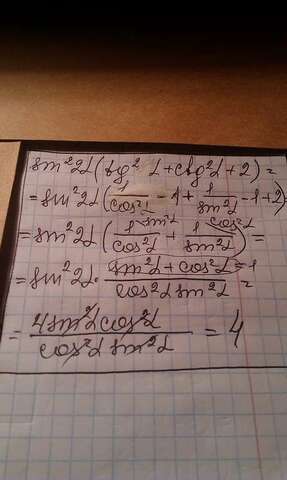 sin²2α(tg²α+ctg²α+2)=
=sin²2α(1/cos²α-1+1/sin²α-1+2)
=sin²2α(1^sin²α/cos²α+1^cos²α/sin²α)=
=sin²2α·(sin²α+cos²α=1)/(cos²α sin²α)=
=4sin²αcos²α/(cos²α sin²α)=4